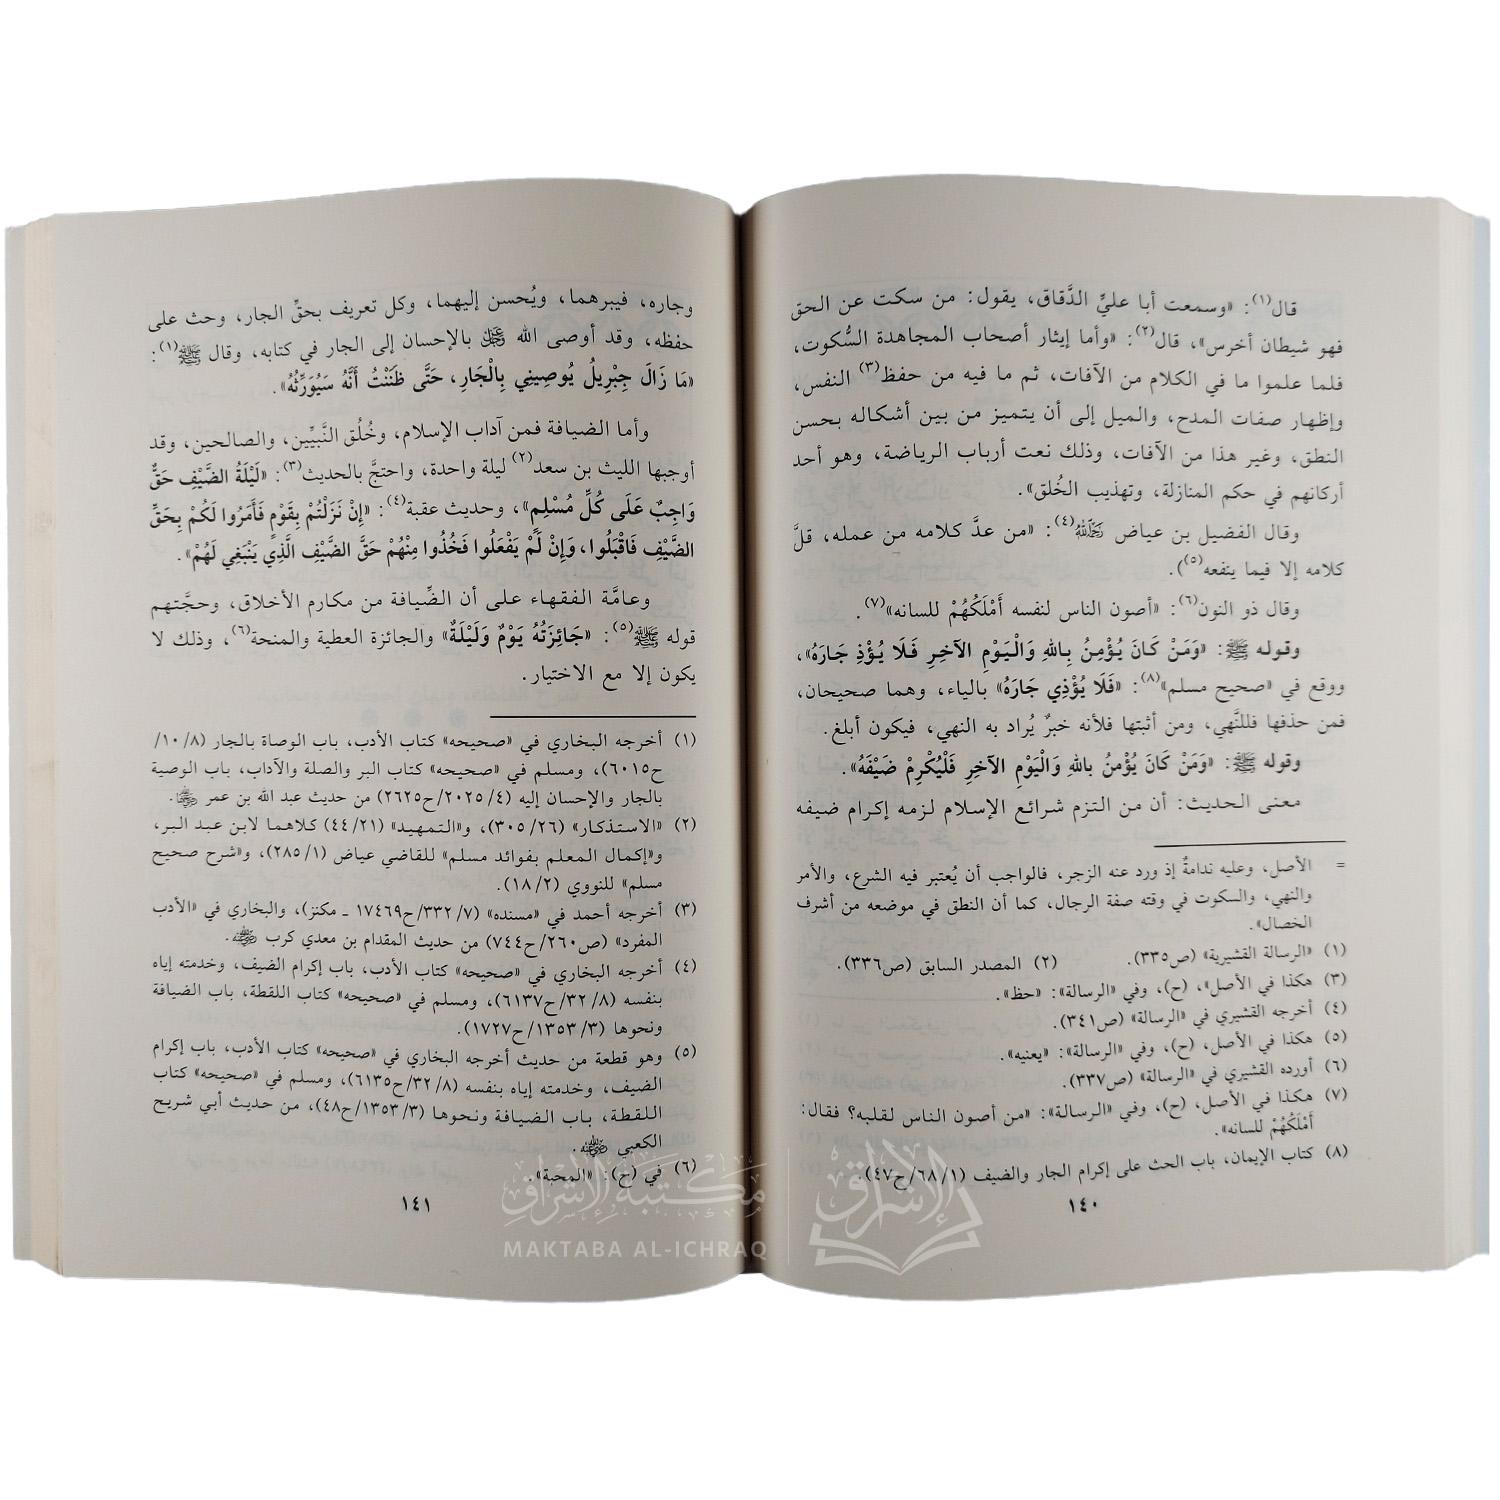 قال(١): «وسمعت أبا عليٍّ الدَّقاق، يقول: من سكت عن الحق
فهو شيطان أخرس»، قال(٢): «وأما إيثار أصحاب المجاهدة السُّكوت،
فلما علموا ما في الكلام من الآفات، ثم ما فيه من حفظ(٣) النفس،
وإظهار صفات المدح، والميل إلى أن يتميز من بين أشكاله بحسن
النطق، وغير هذا من الآفات، وذلك نعت أرباب الرياضة، وهو أحد
أركانهم في حكم المنازلة، وتهذيب الخُلق».
وقال الفضيل بن عياض رَحِمَهُ اللهُ(٤): «من عدَّ كلامه من عمله، قلَّ
كلامه إلا فيما ينفعه(٥)».
وقال ذو النون(٦): «أصون الناس لنفسه أَمْلَكُهُمْ للسانه»(٧).
وقوله ﷺ: «وَمَنْ كَانَ يُؤْمِنُ بِاللهِ وَالْيَوْمِ الآخِرِ فَلَا يُؤْذِ جَارَهُ»،
ووقع في «صحيح مسلم»(٨): «فَلَا يُؤْذِي جَارَهُ» بالياء، وهما صحيحان،
فمن حذفها فللنَّهي، ومن أثبتها فلأنه خبرٌ يُراد به النهي، فيكون أبلغ.
وقوله ﷺ: «وَمَنْ كَانَ يُؤْمنُ باللهِ وَالْيَوْمِ الآخِرِ فَلْيُكْرِمْ ضَيْفَهُ».
معنى الحديث: أن من التزم شرائع الإسلام لزمه إكرام ضيفه
= الأصل، وعليه ندامةٌ إذ ورد عنه الزجر، فالواجب أن يُعتبر فيه الشرع، والأمر
والنهي، والسكوت في وقته صفة الرجال، كما أن النطق في موضعه من أشرف
الخصال».
(١) «الرسالة القشيرية» (ص٣٣٥). (٢) المصدر السابق (ص٣٣٦).
(٣) هكذا في الأصل، (ح)، وفي «الرسالة»: «حظ».
(٤) أخرجه القشيري في «الرسالة» (ص٣٤١).
(٥) هكذا في الأصل، (ح)، وفي «الرسالة»: «يعنيه».
(٦) أورده القشيري في «الرسالة» (ص٣٣٧).
(٧) هكذا في الأصل، (ح)، وفي «الرسالة»: «من أصون الناس لقلبه؟ فقال:
أَمْلَكُهُمْ للسانه».
(٨) كتاب الإيمان، باب الحث على إكرام الجار والضيف (١/ ٦٨/ ح٤٧).
١٤٠
وجاره، فيبرهما، ويُحسن إليهما، وكل تعريف بحقِّ الجار، وحث على
حفظه، وقد أوصى الله عَزَّ وَجَلَّ بالإحسان إلى الجار في كتابه، وقال ﷺ(١):
«مَا زَالَ جِبْرِيلُ يُوصِينِي بِالْجَارِ، حَتَّى ظَنَنْتُ أَنَّهُ سَيُوَرِّثُهُ».
وأما الضيافة فمن آداب الإسلام، وخُلُق النَّبيِّين، والصالحين، وقد
أوجبها الليث بن سعد(٢) ليلة واحدة، واحتجَّ بالحديث(٣): «لَيْلَةُ الضَّيْفِ حَقٌّ
وَاجِبٌ عَلَى كُلِّ مُسْلِمٍ»، وحديث عقبة(٤): «إِنْ نَزَلْتُمْ بِقَوْمٍ فَأَمَرُوا لَكُمْ بِحَقِّ
الضَّيْفِ فَاقْبَلُوا، وَإِنْ لَمْ يَفْعَلُوا فَخُذُوا مِنْهُمْ حَقَّ الضَّيْفِ الَّذِي يَنْبَغِي لَهُمْ».
وعامَّة الفقهاء على أن الضِّيافة من مكارم الأخلاق، وحجَّتهم
قوله ﷺ(٥): «جَائِزَتُهُ يَوْمٌ وَلَيْلَةٌ» والجائزة العطية والمنحة(٦)، وذلك لا
يكون إلا مع الاختيار.
(١) أخرجه البخاري في «صحيحه» كتاب الأدب، باب الوصاة بالجار (٨/ ١٠/
ح٦٠١٥)، ومسلم في «صحيحه» كتاب البر والصلة والآداب، باب الوصية
بالجار والإحسان إليه (٤/ ٢٠٢٥/ ح٢٦٢٥) من حديث عبد الله بن عمر رضي الله عنهما.
(٢) «الاستذكار» (٢٦/ ٣٠٥)، و«التمهيد» (٢١/ ٤٤) كلاهما لابن عبد البر،
و«إكمال المعلم بفوائد مسلم» للقاضي عياض (١/ ٢٨٥)، و«شرح صحيح
مسلم» للنووي (٢/ ١٨).
(٣) أخرجه أحمد في «مسنده» (٧/ ٣٣٢/ ح١٧٤٦٩ ـ مكنز)، والبخاري في «الأدب
المفرد» (ص٢٦٠/ ح٧٤٤) من حديث المقدام بن معدي كرب رضي الله عنه.
(٤) أخرجه البخاري في «صحيحه» كتاب الأدب، باب إكرام الضيف، وخدمته إياه
بنفسه (٨/ ٣٢/ ح٦١٣٧)، ومسلم في «صحيحه» كتاب اللقطة، باب الضيافة
ونحوها (٣/ ١٣٥٣/ ح١٧٢٧).
(٥) وهو قطعة من حديث أخرجه البخاري في «صحيحه» كتاب الأدب، باب إكرام
الضيف، وخدمته إياه بنفسه (٨/ ٣٢/ ح٦١٣٥)، ومسلم في «صحيحه» كتاب
اللقطة، باب الضيافة ونحوها (٣/ ١٣٥٣/ ح٤٨)، من حديث أبي شريح
الكعبي رضي الله عنه.
(٦) في (ح): «المحبة».
١٤١
مكتبة الإشراق
MAKTABA AL-ICHRAQ
الإشراق